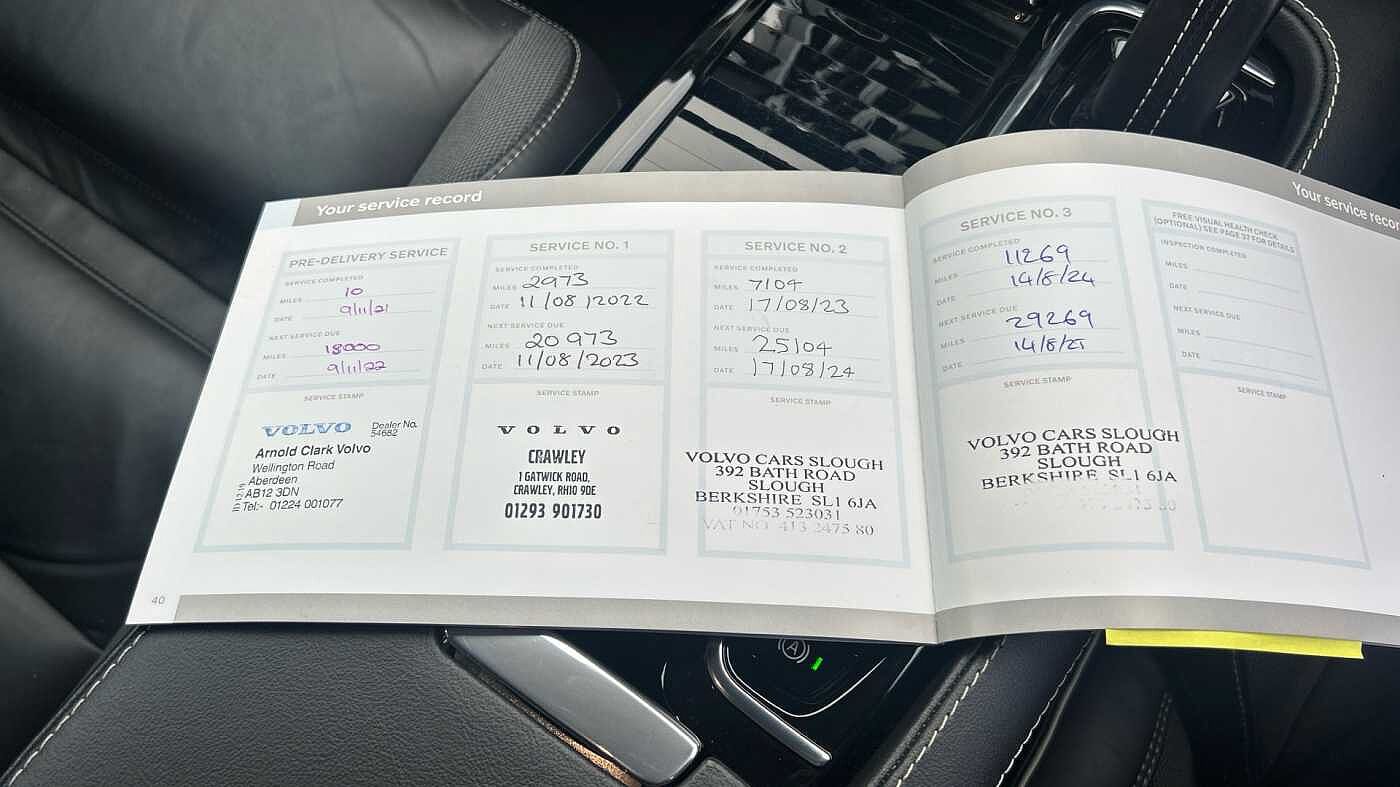 Your service record
PRE-DELIVERY SERVICE
SERVICE COMPLETED
MILES 10
DATE 9/11/21
NEXT SERVICE DUE
MILES 18000
DATE 9/11/22
SERVICE STAMP
VOLVO Dealer No.
54682
Arnold Clark Volvo
Wellington Road
Aberdeen
AB12 3DN
Tel:- 01224 001077
SERVICE NO. 1
SERVICE COMPLETED
MILES 2973
DATE 11/08/2022
NEXT SERVICE DUE
MILES 20973
DATE 11/08/2023
SERVICE STAMP
VOLVO
CRAWLEY
1 GATWICK ROAD,
CRAWLEY, RH10 9DE
01293 901730
SERVICE NO. 2
SERVICE COMPLETED
MILES 7104
DATE 17/08/23
NEXT SERVICE DUE
MILES 25104
DATE 17/08/24
SERVICE STAMP
VOLVO CARS SLOUGH
392 BATH ROAD
SLOUGH
BERKSHIRE SL1 6JA
01753 523031
VAT NO. 413 2475 80
40
Your service recor
SERVICE NO. 3
SERVICE COMPLETED
MILES 11269
DATE 14/8/24
NEXT SERVICE DUE
MILES 29269
DATE 14/8/25
SERVICE STAMP
VOLVO CARS SLOUGH
392 BATH ROAD
SLOUGH
BERKSHIRE SL1 6JA
80
FREE VISUAL HEALTH CHECK
(OPTIONAL) SEE PAGE 37 FOR DETAILS
INSPECTION COMPLETED
MILES
DATE
NEXT SERVICE DUE
MILES
DATE
SERVICE STAMP
A